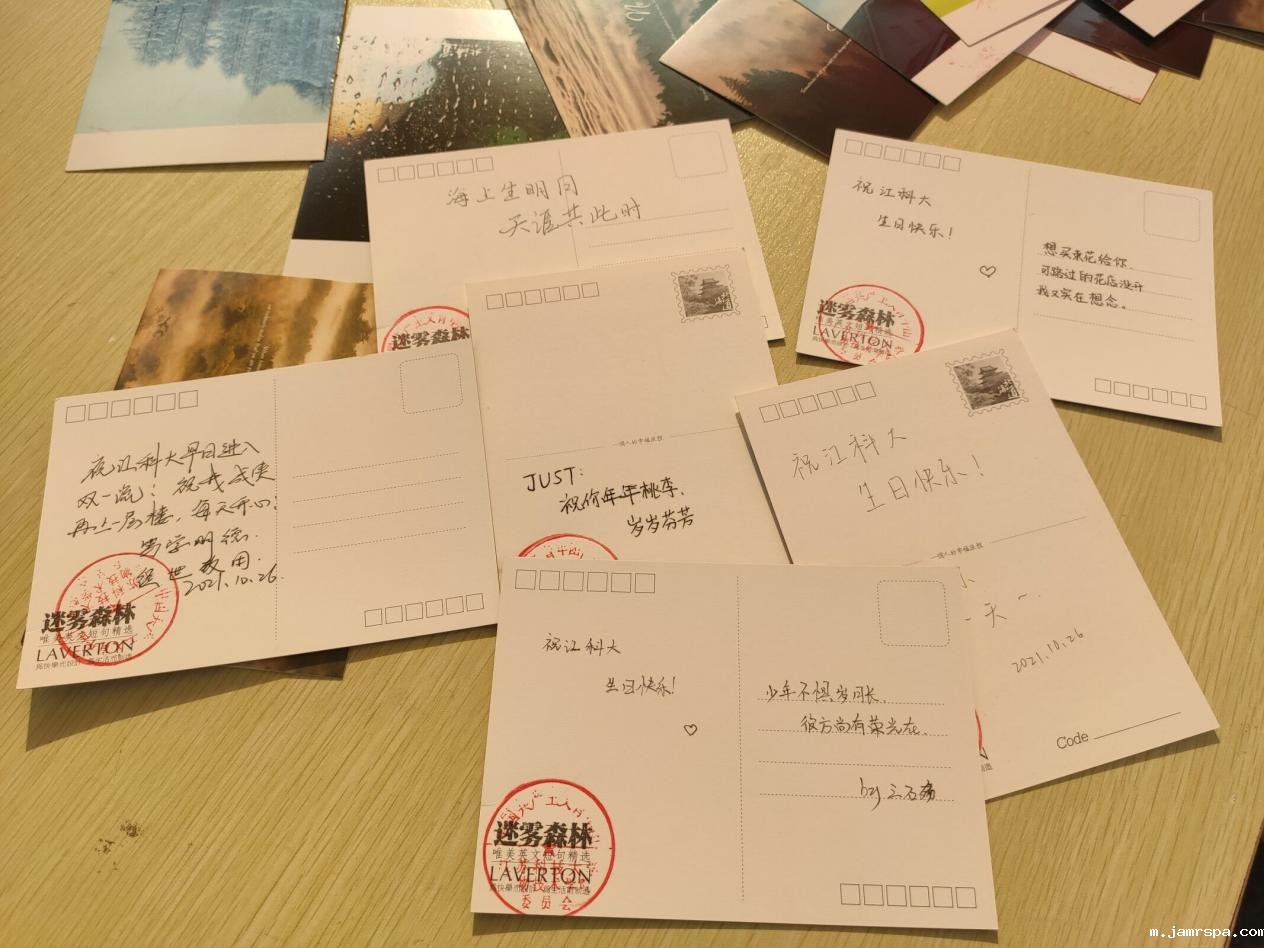 海上生明月
天涯共此时
迷雾森林
祝江科大
生日快乐!
♡
想买束花给你.
可路过的花店没开
我又实在想念。
迷雾森林
唯美英文短句精选
LAVERTON
祝江科大早日进入
双一流! 祝我成绩
再上一层楼, 每天开心!
笃学明德.
经世致用.
2021.10.26.
迷雾森林
唯美英文短句精选
LAVERTON
一個人的幸福旅程
JUST:
祝你年年桃李,
岁岁芬芳
祝江科大
生日快乐!
一個人的幸福旅程
天~.
2021.10.26
Code
祝江科大
生日快乐!
♡
少年不惧岁月长,
彼方尚有荣光在.
by
迷雾森林
唯美英文短句精选
LAVERTON
委员会
m.jamrspa.com